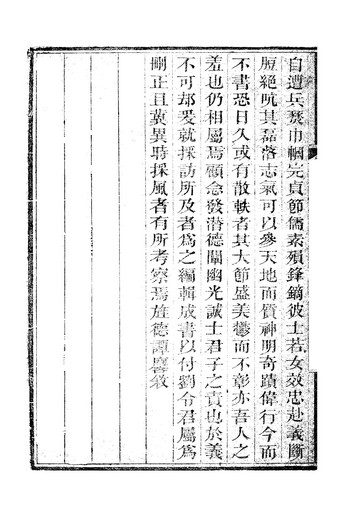 自遭兵燹巾幗完貞節儒素殞鋒鏑彼士若女效忠赴義斷
脰絶吭其磊落志氣可以參天地而質神明奇蹟偉行今而
不書恐日久或有散軼者其大節盛美鬱而不彰亦吾人之
羞也仍相屬焉顧念發潛德闡幽光誠士君子之責也於義
不可却爰就採訪所及者為之編輯成書以付劉令君屬為
剛正且冀異時採風者有所考察焉旌德譚麐敘